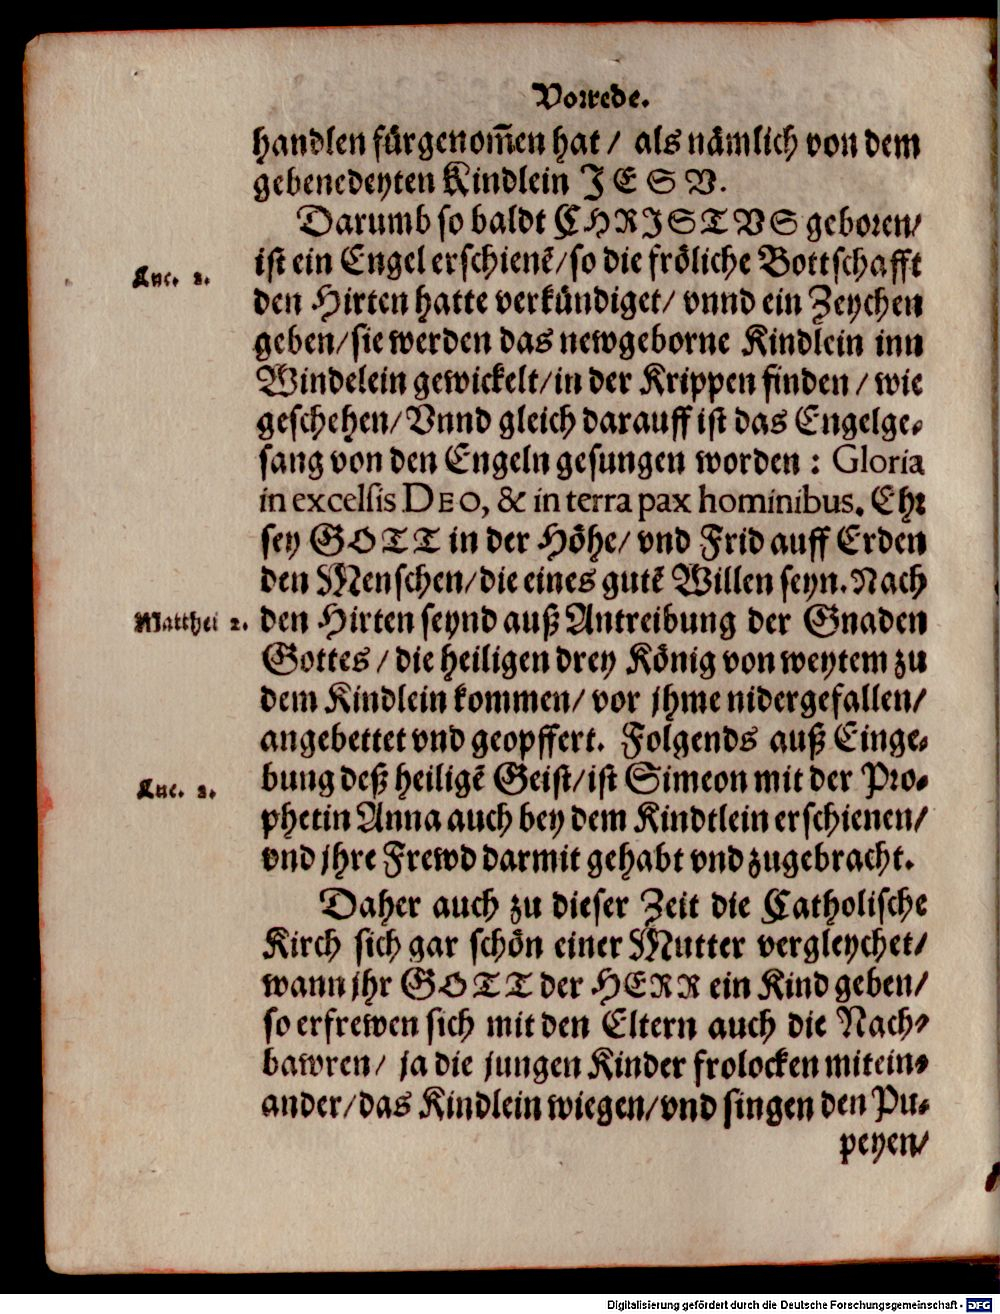 Vorrede.
handlen fürgenom̃en hat / als nämlich von dem
gebenedeyten Kindlein J E S V.
Darumb so baldt CHRISTVS geboren/
ist ein Engel erschienẽ/so die fröliche Bottschafft
Luc. 2.
den Hirten hatte verkündiget/ vnnd ein Zeychen
geben/sie werden das newgeborne Kindlein inn
Windelein gewickelt/in der Krippen finden / wie
geschehen/ Vnnd gleich darauff ist das Engelge-
sang von den Engeln gesungen worden : Gloria
in excelsis DEO, & in terra pax hominibus. Ehr
sey GOTT in der Höhe/ vnd Frid auff Erden
den Menschen/die eines gutẽ Willen seyn. Nach
Matthei 2.
den Hirten seynd auß Antreibung der Gnaden
Gottes / die heiligen drey König von weytem zu
dem Kindlein kommen/ vor jhme nidergefallen/
angebettet vnd geopffert. Folgends auß Einge-
bung deß heiligẽ Geist/ist Simeon mit der Pro-
Luc. 2.
phetin Anna auch bey dem Kindtlein erschienen/
vnd jhre Frewd darmit gehabt vnd zugebracht.
Daher auch zu dieser Zeit die Catholische
Kirch sich gar schön einer Mutter vergleychet/
wann jhr GOTT der HERR ein Kind geben/
so erfrewen sich mit den Eltern auch die Nach-
bawren/ ja die jungen Kinder frolocken mitein-
ander/das Kindlein wiegen/vnd singen den Pu-
peyen/
Digitalisierung gefördert durch die Deutsche Forschungsgemeinschaft - DFG